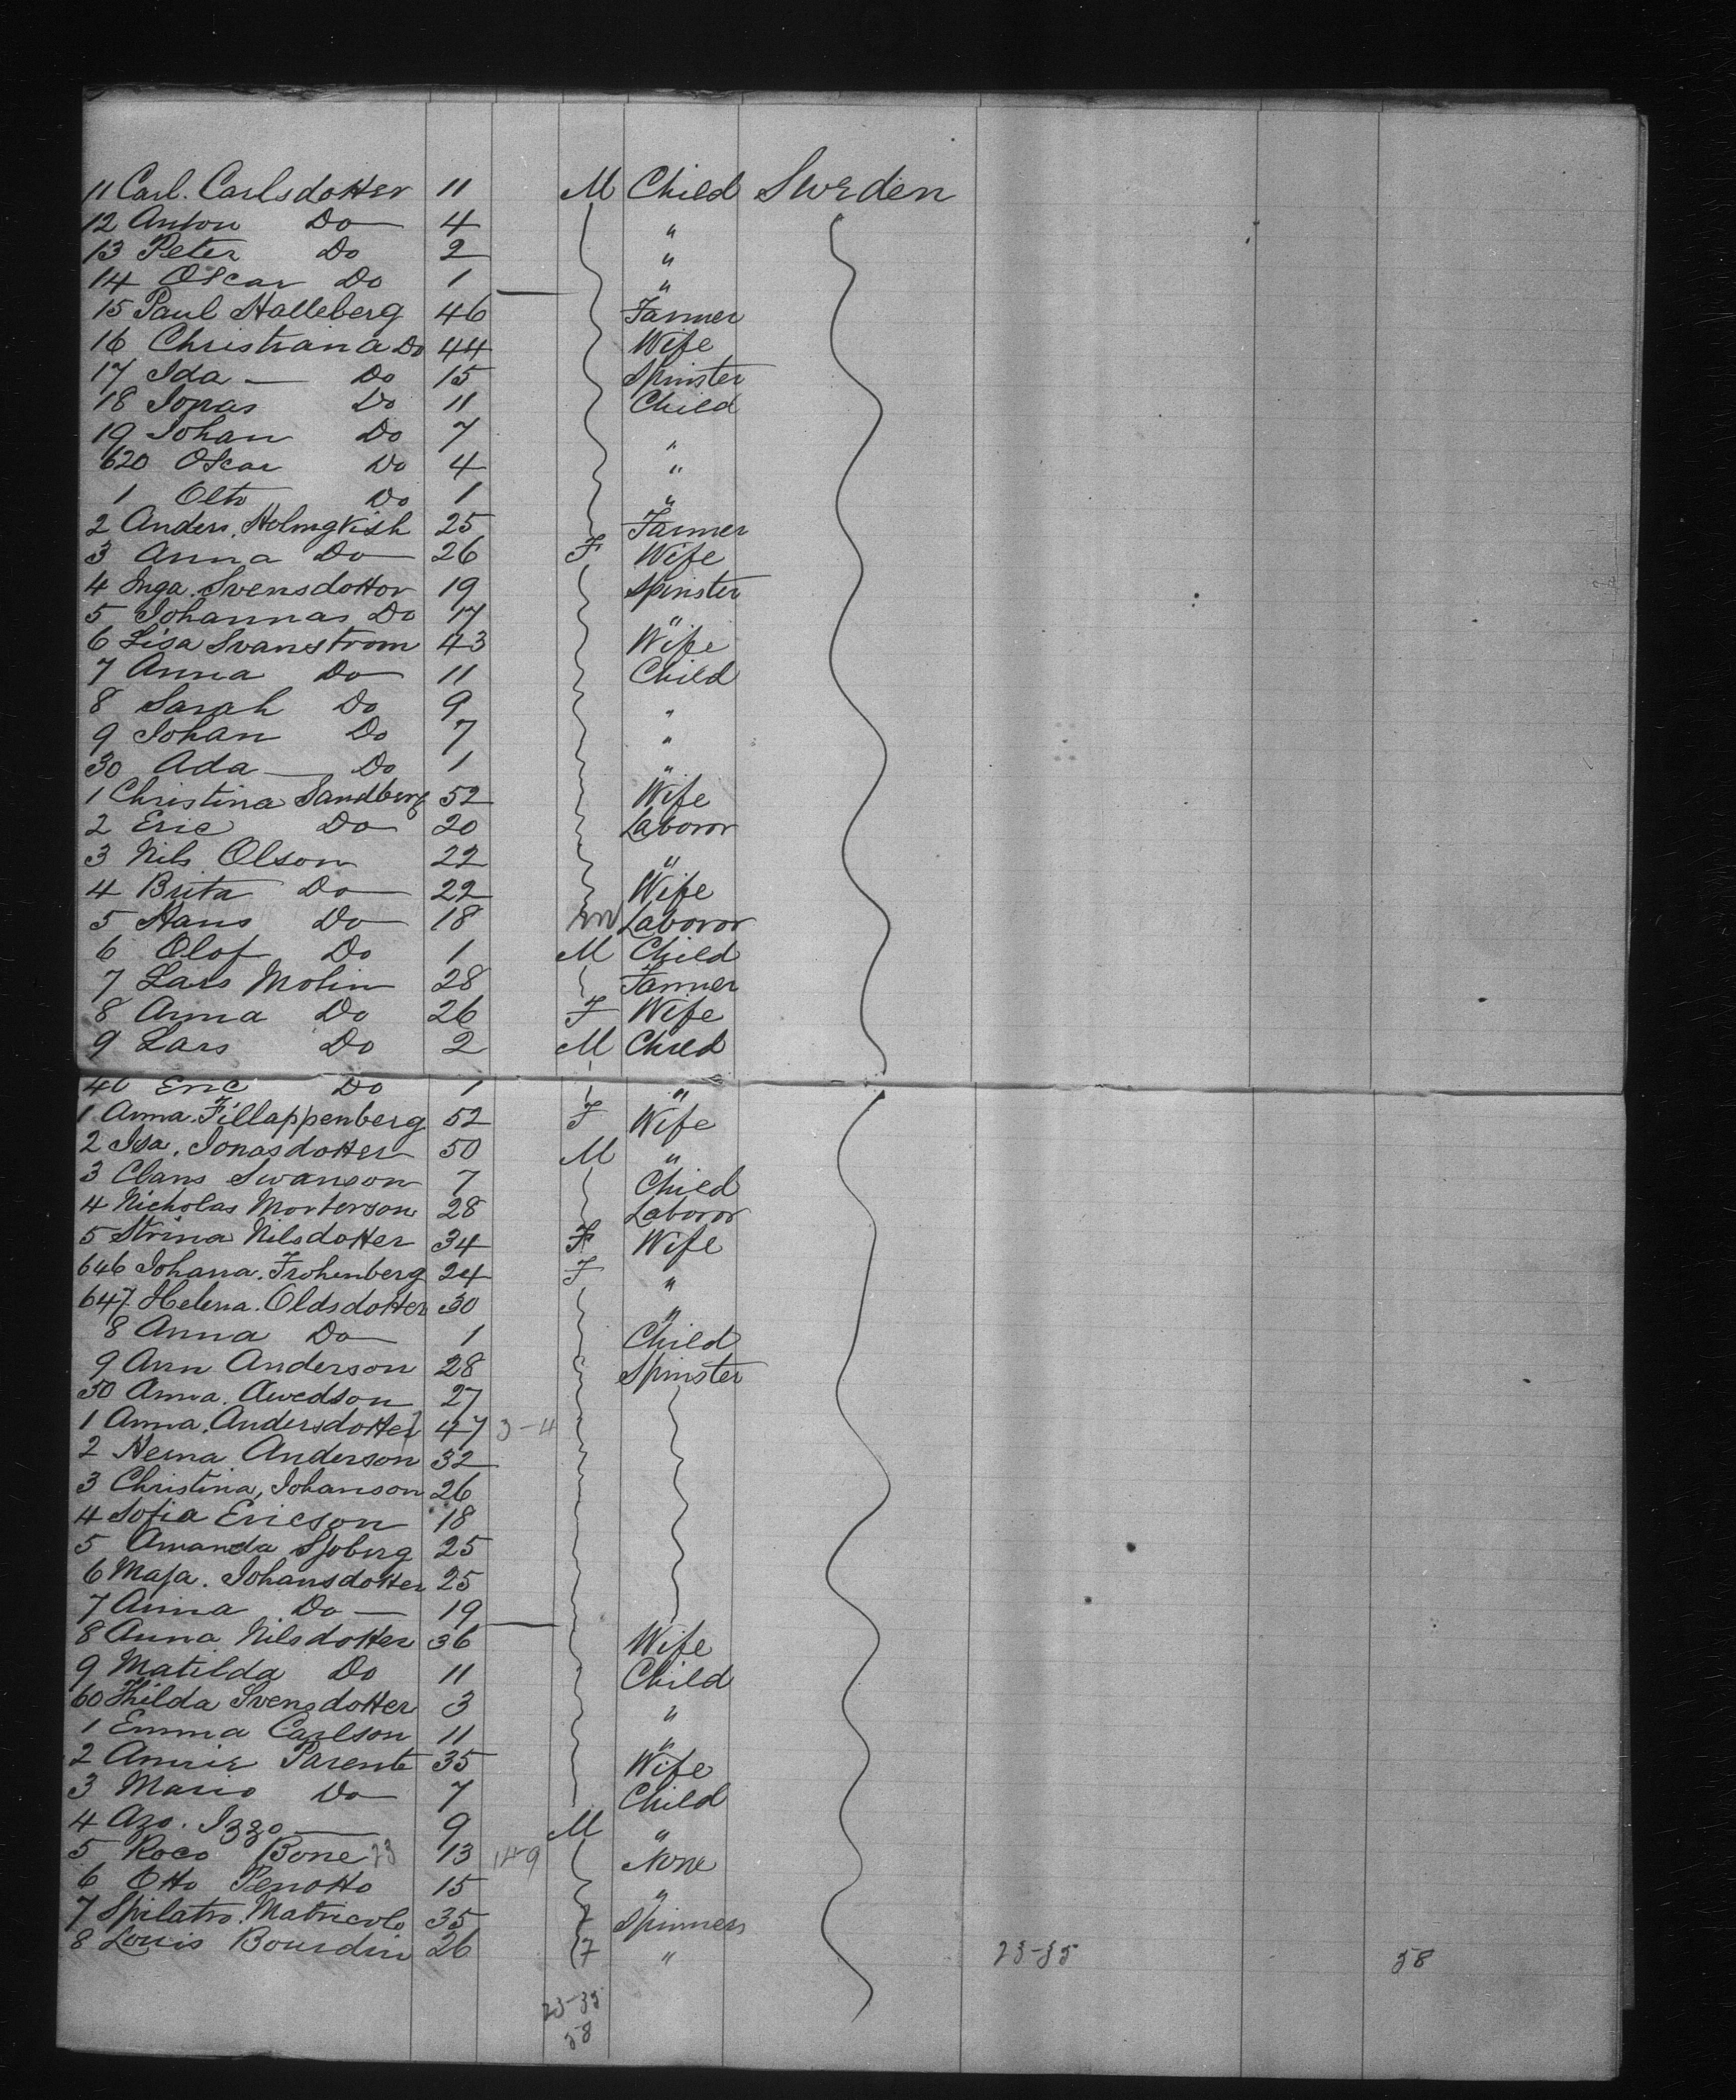 11 Carl. Carlsdotter 11 M Child Sweden
12 Anton Do 4 "
13 Peter Do 2 "
14 Oscar Do 1 "
15 Paul Halleberg 46 Farmer
16 Christiana Do 44 Wife
17 Ida — Do 15 Spinster
18 Jonas Do 11 Child
19 Johan Do 7 "
620 Oscar Do 4 "
1 Otto Do 1 "
2 Anders. Holmgvish 25 Farmer
3 Anna Do 26 F Wife
4 Inga. Svensdottor 19 Spinster
5 Johannas Do 17 "
6 Lisa Svanstrom 43 Wife
7 Anna Do 11 Child
8 Sarah Do 9 "
9 Johan Do 7 "
30 Ada — Do 1 "
1 Christina Sandberg 52 Wife
2 Eric Do 20 Laboror
3 Nils Olson 22 "
4 Brita Do 22 Wife
5 Hans Do 18 m Laboror
6 Olof Do 1 M Child
7 Lars Molin 28 Farmer
8 Anna Do 26 F Wife
9 Lars Do 2 M Child
40 Eric Do 1 "
1 Anna. Fillappenberg 52 F Wife
2 Isa. Jonasdotter 50 M "
3 Clans Swanson 7 Child
4 Nicholas Morterson 28 Laboror
5 Strina Nilsdotter 34 F Wife
646 Johana. Frohenberg 24 F "
647 Helena. Oldsdotter 30 "
8 Anna Do 1 Child
9 Ann Anderson 28 Spinster
50 Anna. Awedson 27
1 Anna. Andersdotter 47 3-4
2 Herna Anderson 32
3 Christina, Johanson 26
4 Sofia Ericson 18
5 Amanda Sjoberg 25
6 Maja. Johansdotter 25
7 Anna Do — 19
8 Anna Nilsdotter 36 Wife
9 Matilda Do 11 Child
60 Hilda Svensdotter 3 "
1 Emma Carlson 11 "
2 Annie Parente 35 Wife
3 Mario Do 7 Child
4 Azo. Izzo — 9 M "
5 Roco Bone 23 13 149 None
6 Otto Penotto 15 "
7 Spilatro. Matricolo 35 7 Spinners
8 Louis Bourdin 26 7 " 23-35 58
23-35
58